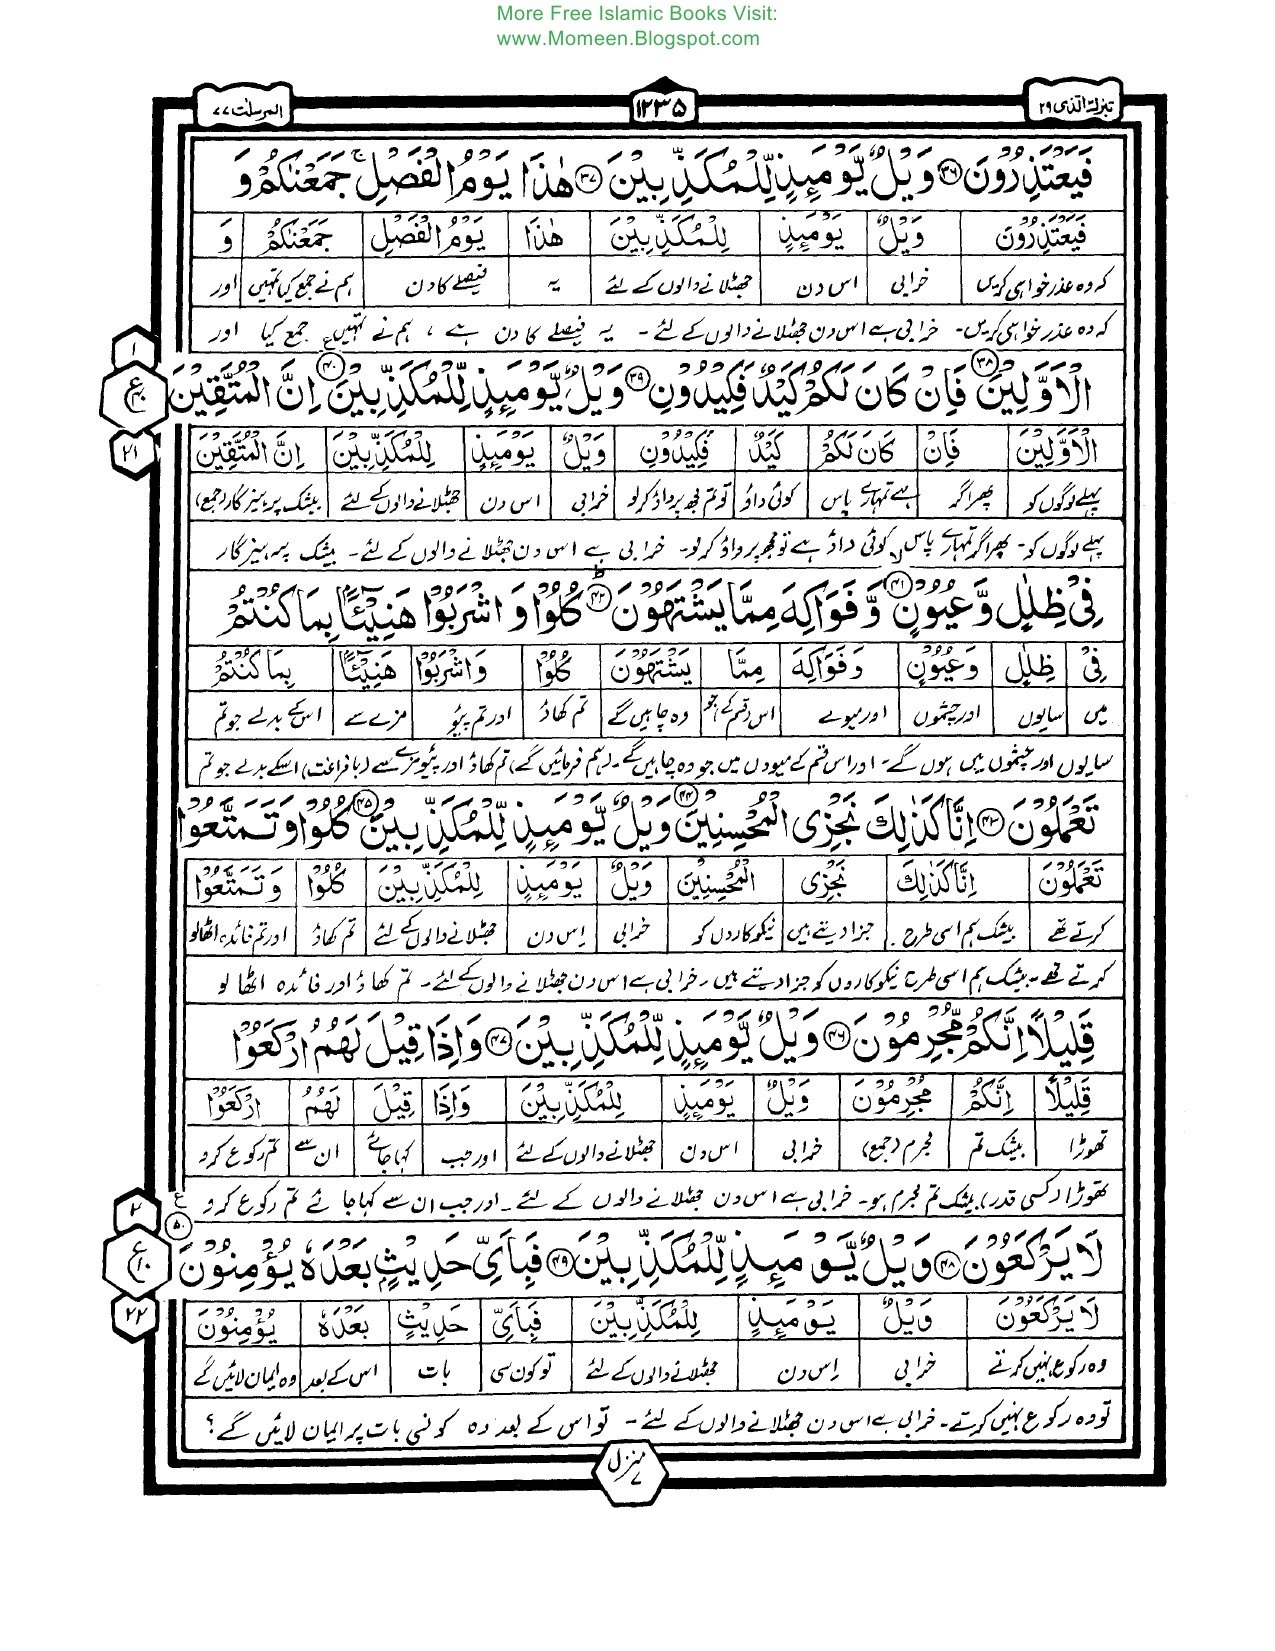 More Free Islamic Books Visit:
www.Momeen.Blogspot.com
تبٰرك الذی ۲۹
۱۲۳۵
المرسلٰت ۷۷
فَيَعْتَذِرُوْنَ ۳۶ وَيْلٌ يَّوْمَئِذٍ لِّلْمُكَذِّبِيْنَ ۳۷ هٰذَا يَوْمُ الْفَصْلِ ۚ جَمَعْنٰكُمْ وَ
فَيَعْتَذِرُوْنَ وَيْلٌ يَوْمَئِذٍ لِلْمُكَذِّبِيْنَ هٰذَا يَوْمُ الْفَصْلِ جَمَعْنٰكُمْ وَ
کہ وہ عذر خواہی کریں خرابی اس دن جھٹلانے والوں کے لئے یہ فیصلے کا دن ہم نے جمع کیا تمہیں اور
کہ وہ عذر خواہی کریں۔ خرابی ہے اس دن جھٹلانے والوں کے لئے۔ یہ فیصلے کا دن ہے ، ہم نے تمہیں جمع کیا اور
۱
الْاَوَّلِيْنَ ۳۸ فَاِنْ كَانَ لَكُمْ كَيْدٌ فَكِيْدُوْنِ ۳۹ وَيْلٌ يَّوْمَئِذٍ لِّلْمُكَذِّبِيْنَ ۴۰ اِنَّ الْمُتَّقِيْنَ
ع ۴۰
الْاَوَّلِيْنَ فَاِنْ كَانَ لَكُمْ كَيْدٌ فَكِيْدُوْنِ وَيْلٌ يَوْمَئِذٍ لِلْمُكَذِّبِيْنَ اِنَّ الْمُتَّقِيْنَ
۲۱
پہلے لوگوں کو پھر اگر ہے تمہارے پاس کوئی داؤ تو تم مجھ پر داؤ کر لو خرابی اس دن جھٹلانے والوں کے لئے بیشک پرہیزگار (جمع)
پہلے لوگوں کو۔ پھر اگر تمہارے پاس کوئی داؤ ہے تو مجھ پر داؤ کر لو۔ خرابی ہے اس دن جھٹلانے والوں کے لئے۔ بیشک پرہیزگار
فِیْ ظِلٰلٍ وَّعُيُوْنٍ ۴۱ وَّفَوَاكِهَ مِمَّا يَشْتَهُوْنَ ۴۲ كُلُوْا وَاشْرَبُوْا هَنِيْٓـئًۢا بِمَا كُنْتُمْ
فِیْ ظِلٰلٍ وَعُيُوْنٍ وَفَوَاكِهَ مِمَّا يَشْتَهُوْنَ كُلُوْا وَاشْرَبُوْا هَنِيْٓـئًۢا بِمَا كُنْتُمْ
میں سایوں اور چشموں اور میوے اس قسم کے جو وہ چاہیں گے تم کھاؤ اور تم پیؤ مزے سے اس کے بدلے جو تم
سایوں اور چشموں میں ہوں گے۔ اور اس قسم کے میووں میں جو وہ چاہیں گے۔ (ہم فرمائیں گے) تم کھاؤ اور پیؤ مزے سے (بافراغت) اسکے بدلے جو تم
تَعْمَلُوْنَ ۴۳ اِنَّا كَذٰلِكَ نَجْزِی الْمُحْسِنِيْنَ ۴۴ وَيْلٌ يَّوْمَئِذٍ لِّلْمُكَذِّبِيْنَ ۴۵ كُلُوْا وَتَمَتَّعُوْا
تَعْمَلُوْنَ اِنَّا كَذٰلِكَ نَجْزِی الْمُحْسِنِيْنَ وَيْلٌ يَوْمَئِذٍ لِلْمُكَذِّبِيْنَ كُلُوْا وَتَمَتَّعُوْا
کرتے تھے بیشک ہم اسی طرح جزا دیتے ہیں نیکوکاروں کو خرابی اس دن جھٹلانے والوں کے لئے تم کھاؤ اور تم فائدہ اٹھالو
کرتے تھے۔ بیشک ہم اسی طرح نیکوکاروں کو جزا دیتے ہیں۔ خرابی ہے اس دن جھٹلانے والوں کے لئے۔ تم کھاؤ اور فائدہ اٹھا لو
قَلِيْلًا اِنَّكُمْ مُّجْرِمُوْنَ ۴۶ وَيْلٌ يَّوْمَئِذٍ لِّلْمُكَذِّبِيْنَ ۴۷ وَاِذَا قِيْلَ لَهُمُ ارْكَعُوْا
قَلِيْلًا اِنَّكُمْ مُجْرِمُوْنَ وَيْلٌ يَوْمَئِذٍ لِلْمُكَذِّبِيْنَ وَاِذَا قِيْلَ لَهُمُ ارْكَعُوْا
تھوڑا بیشک تم مجرم (جمع) خرابی اس دن جھٹلانے والوں کے لئے اور جب کہا جائے ان سے تم رکوع کرو
تھوڑا (کسی قدر) بیشک تم مجرم ہو۔ خرابی ہے اس دن جھٹلانے والوں کے لئے۔ اور جب ان سے کہا جائے تم رکوع کرو
۲
لَا يَرْكَعُوْنَ ۴۸ وَيْلٌ يَّوْمَئِذٍ لِّلْمُكَذِّبِيْنَ ۴۹ فَبِاَیِّ حَدِيْثٍۭ بَعْدَهٗ يُؤْمِنُوْنَ ۵۰
ع ۱۰
لَا يَرْكَعُوْنَ وَيْلٌ يَوْمَئِذٍ لِلْمُكَذِّبِيْنَ فَبِاَیِّ حَدِيْثٍ بَعْدَهٗ يُؤْمِنُوْنَ
۲۲
وہ رکوع نہیں کرتے خرابی اس دن جھٹلانے والوں کے لئے تو کون سی بات اس کے بعد وہ ایمان لائیں گے
تو وہ رکوع نہیں کرتے۔ خرابی ہے اس دن جھٹلانے والوں کے لئے۔ تو اس کے بعد وہ کونسی بات پر ایمان لائیں گے؟
منزل ۷